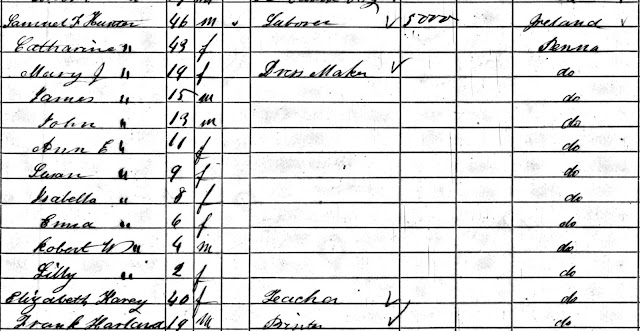 Samuel F Hunter 46 m Laborer 5000 Ireland
Catharine " 43 f Penna
Mary J " 19 f Dress Maker do
James " 15 m do
John " 13 m do
Ann E " 11 f do
Susan " 9 f do
Isabella " 8 f do
Emma " 6 f do
Robert W " 4 m do
Lilly " 2 f do
Elizabeth 40 f Teacher do
Frank 19 m Printer do